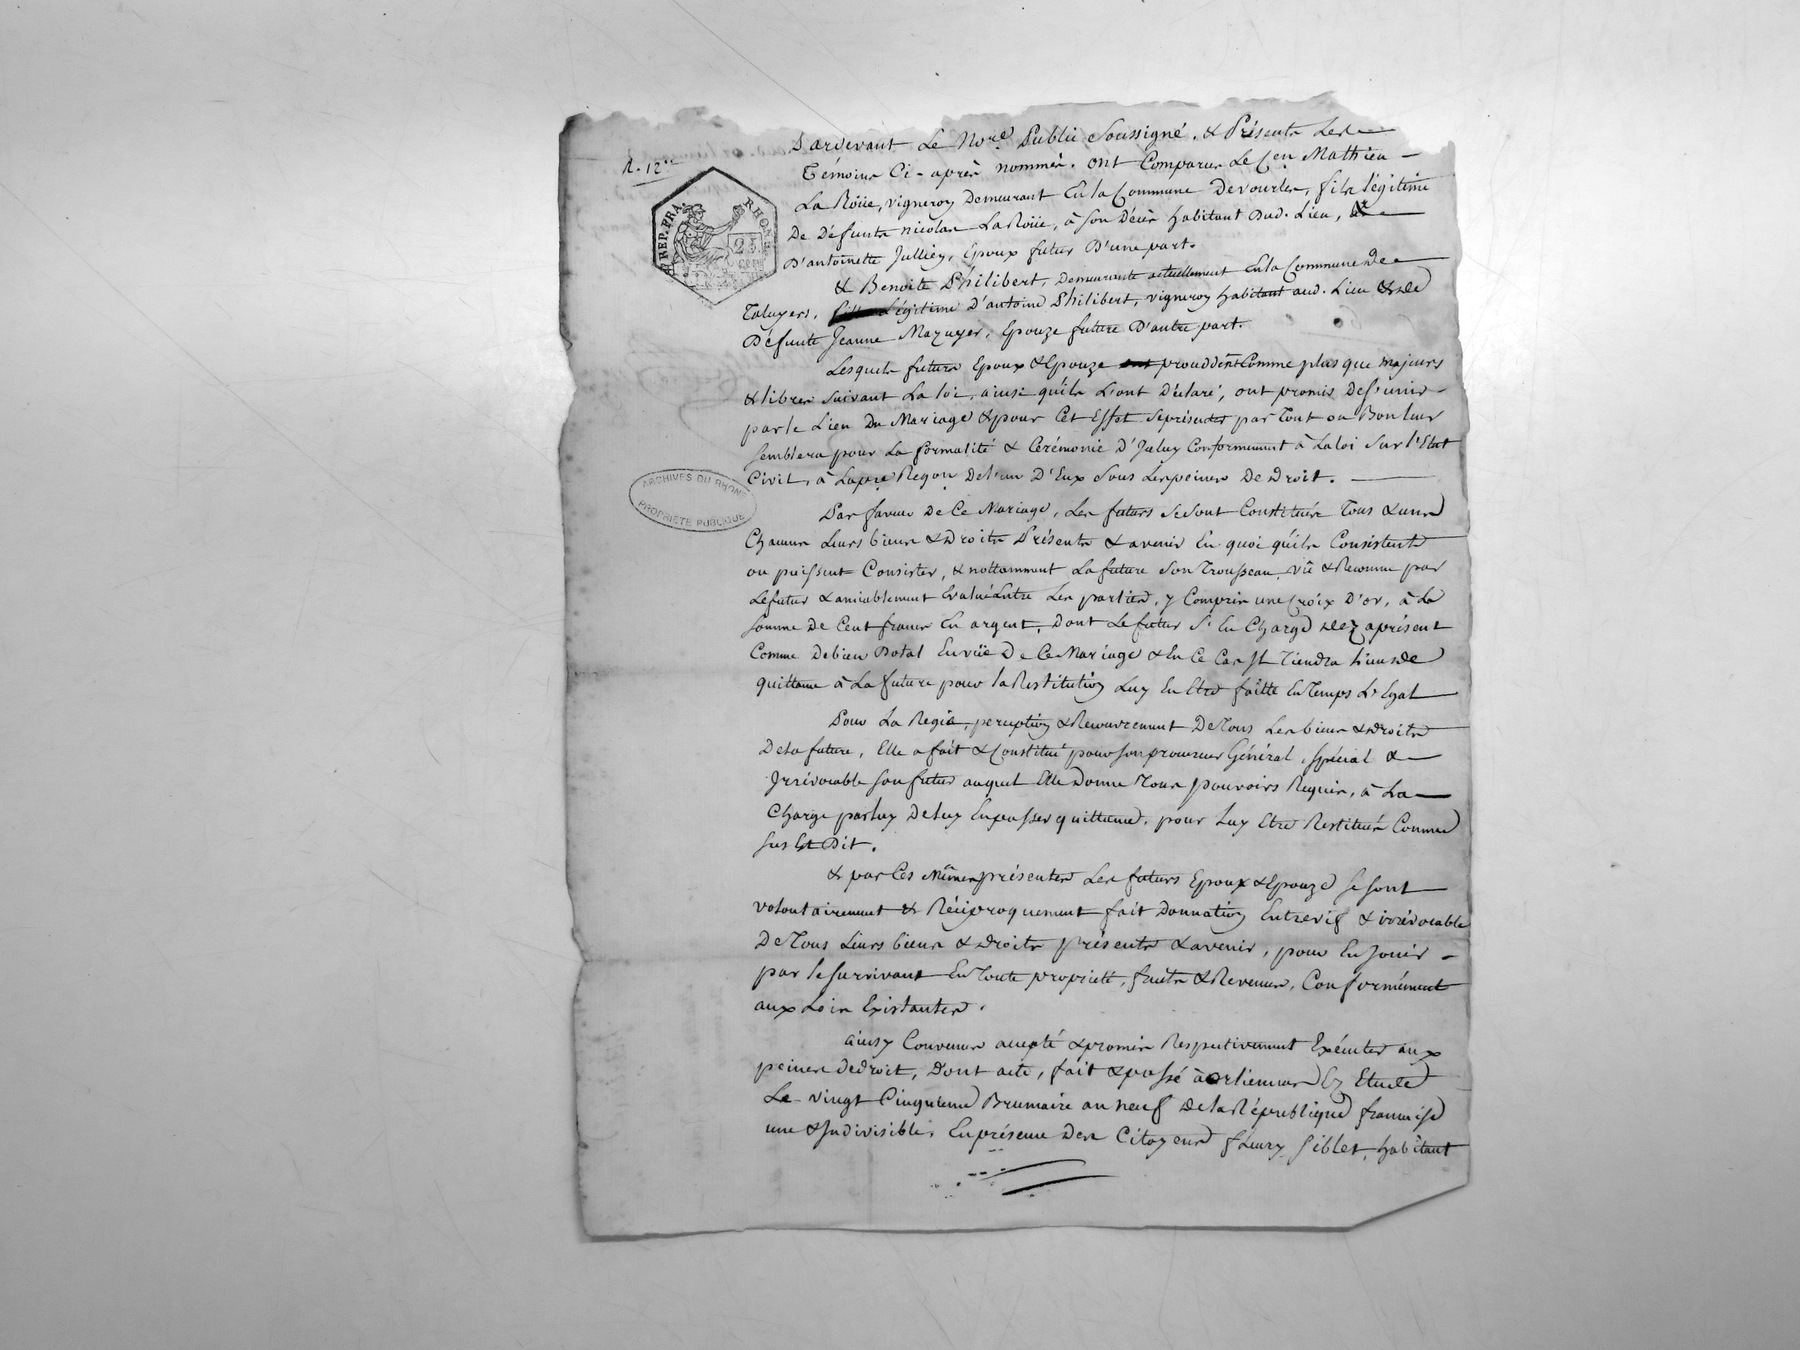 R. 12
REP. FRA. RHONE
25 CEN
Pardevant Le No.re Public Soussigné, & Présents Les
Témoins Ci-après nommés. ont Comparus Le C.en Mathieu
La Roüe, vigneron Demeurant En la Commune Devourles, fils légitime
De Défunts nicolas LaRoüe, à Son Décès habitant Dud. Lieu, &
D'antoinette Jullien, Epoux futur D'une part.
& Benoite Philibert, Demeurante actuellement En la Commune De
Taluyers, Légitime D'antoine Philibert, vigneron habitant aud. Lieu & de
Défunte Jeanne Mazuyer, Epouze future D'autre part.
Lesquels futurs Epoux & Epouze procèddent Comme plus que majeurs
& libres Suivant La loi, ainsi qu'ils L'ont Déclaré, ont promis De S'unir
par le Lien Du Mariage & pour Cet Effet Se présenter par Tout ou Bon leur
Semblera pour La formalité & Cérémonie D'Jceluy Conformement à La loi Sur l'Etat
Civil, à La p.re Req.on De l'un D'Eux Sous Les peines De Droit.
ARCHIVES DU RHONE
PROPRIETE PUBLIQUE
Par faveur De Ce Mariage, Les futurs Se Sont Constitués Tous & uns
Chacuns Leurs biens & Droits Présents & avenir En quoi qu'ils Consistent
ou puissent Consister, & nottamment La future Son Trousseau, vû & Reconnu par
Le futur & amiablement Evalué Entre Les parties, y Compris une Croix D'or, à La
Somme De Cent francs En argent, Dont Le futur S'En Charge dez aprésent
Comme De bien Dotal En vüe De Ce Mariage & En Ce Cas Jl Tiendra Lieu de
quittance à La future pour la Restitution Luy En Etre faitte En Temps L'Egal
Pour La Regie, perception & Recouvrement De Tous Les biens & Droits
De la future, Elle a fait & Constitué pour Son procureur Général, Spécial &
Jrrévocable Son futur auquel Elle Donne Tous pouvoirs Requis, à La
Charge par luy De luy En passer quittance, pour Luy Etre Restitués Comme
Sus Est Dit.
& par Ces Mêmes présentes Les futurs Epoux & Epouze Se Sont
volontairement & Réciproquement fait Donnation Entrevif & irrévocable
De Tous Leurs biens & Droits présents & avenir, pour En Jouir
par le Survivant En Toute propriété, fruits & Revenus, Conformément
aux Loix Existantes.
ainsy Convenu accepté & promis Respectivement Exécuter aux
peines de droit, Dont acte, fait & passé à orlienas En Etude
Le vingt Cinquieme Brumaire an neuf de la République française
une & Jndivisible, En présence Des Citoyens fleury Giblet, habitant